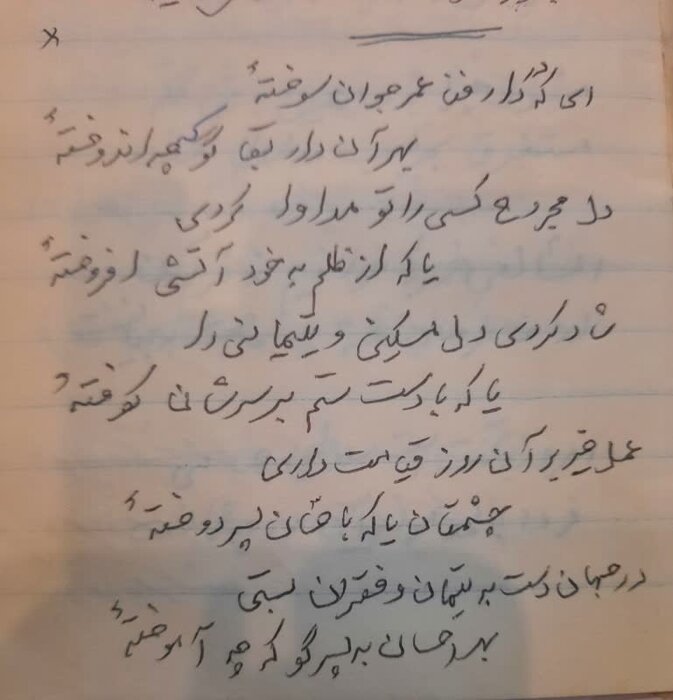 ای که در دار فنا عمر جوان سوختهٔ
بهر آن دار بقا گو که چه اندوختهٔ
دل مجروح کسی را تو مداوا کردی
یا که از ظلم به خود آتشی افروختهٔ
شاد کردی دل مسکین و یتیمانی را
یا که با دست ستم بر سرشان کوفتهٔ
عمل خیر بر آن روز قیامت داری
چشمتان یا که به پسر دوختهٔ
در جهان دست به یتیمان و فقران بستی
بهر احسان به پسر گو که چه آموختهٔ